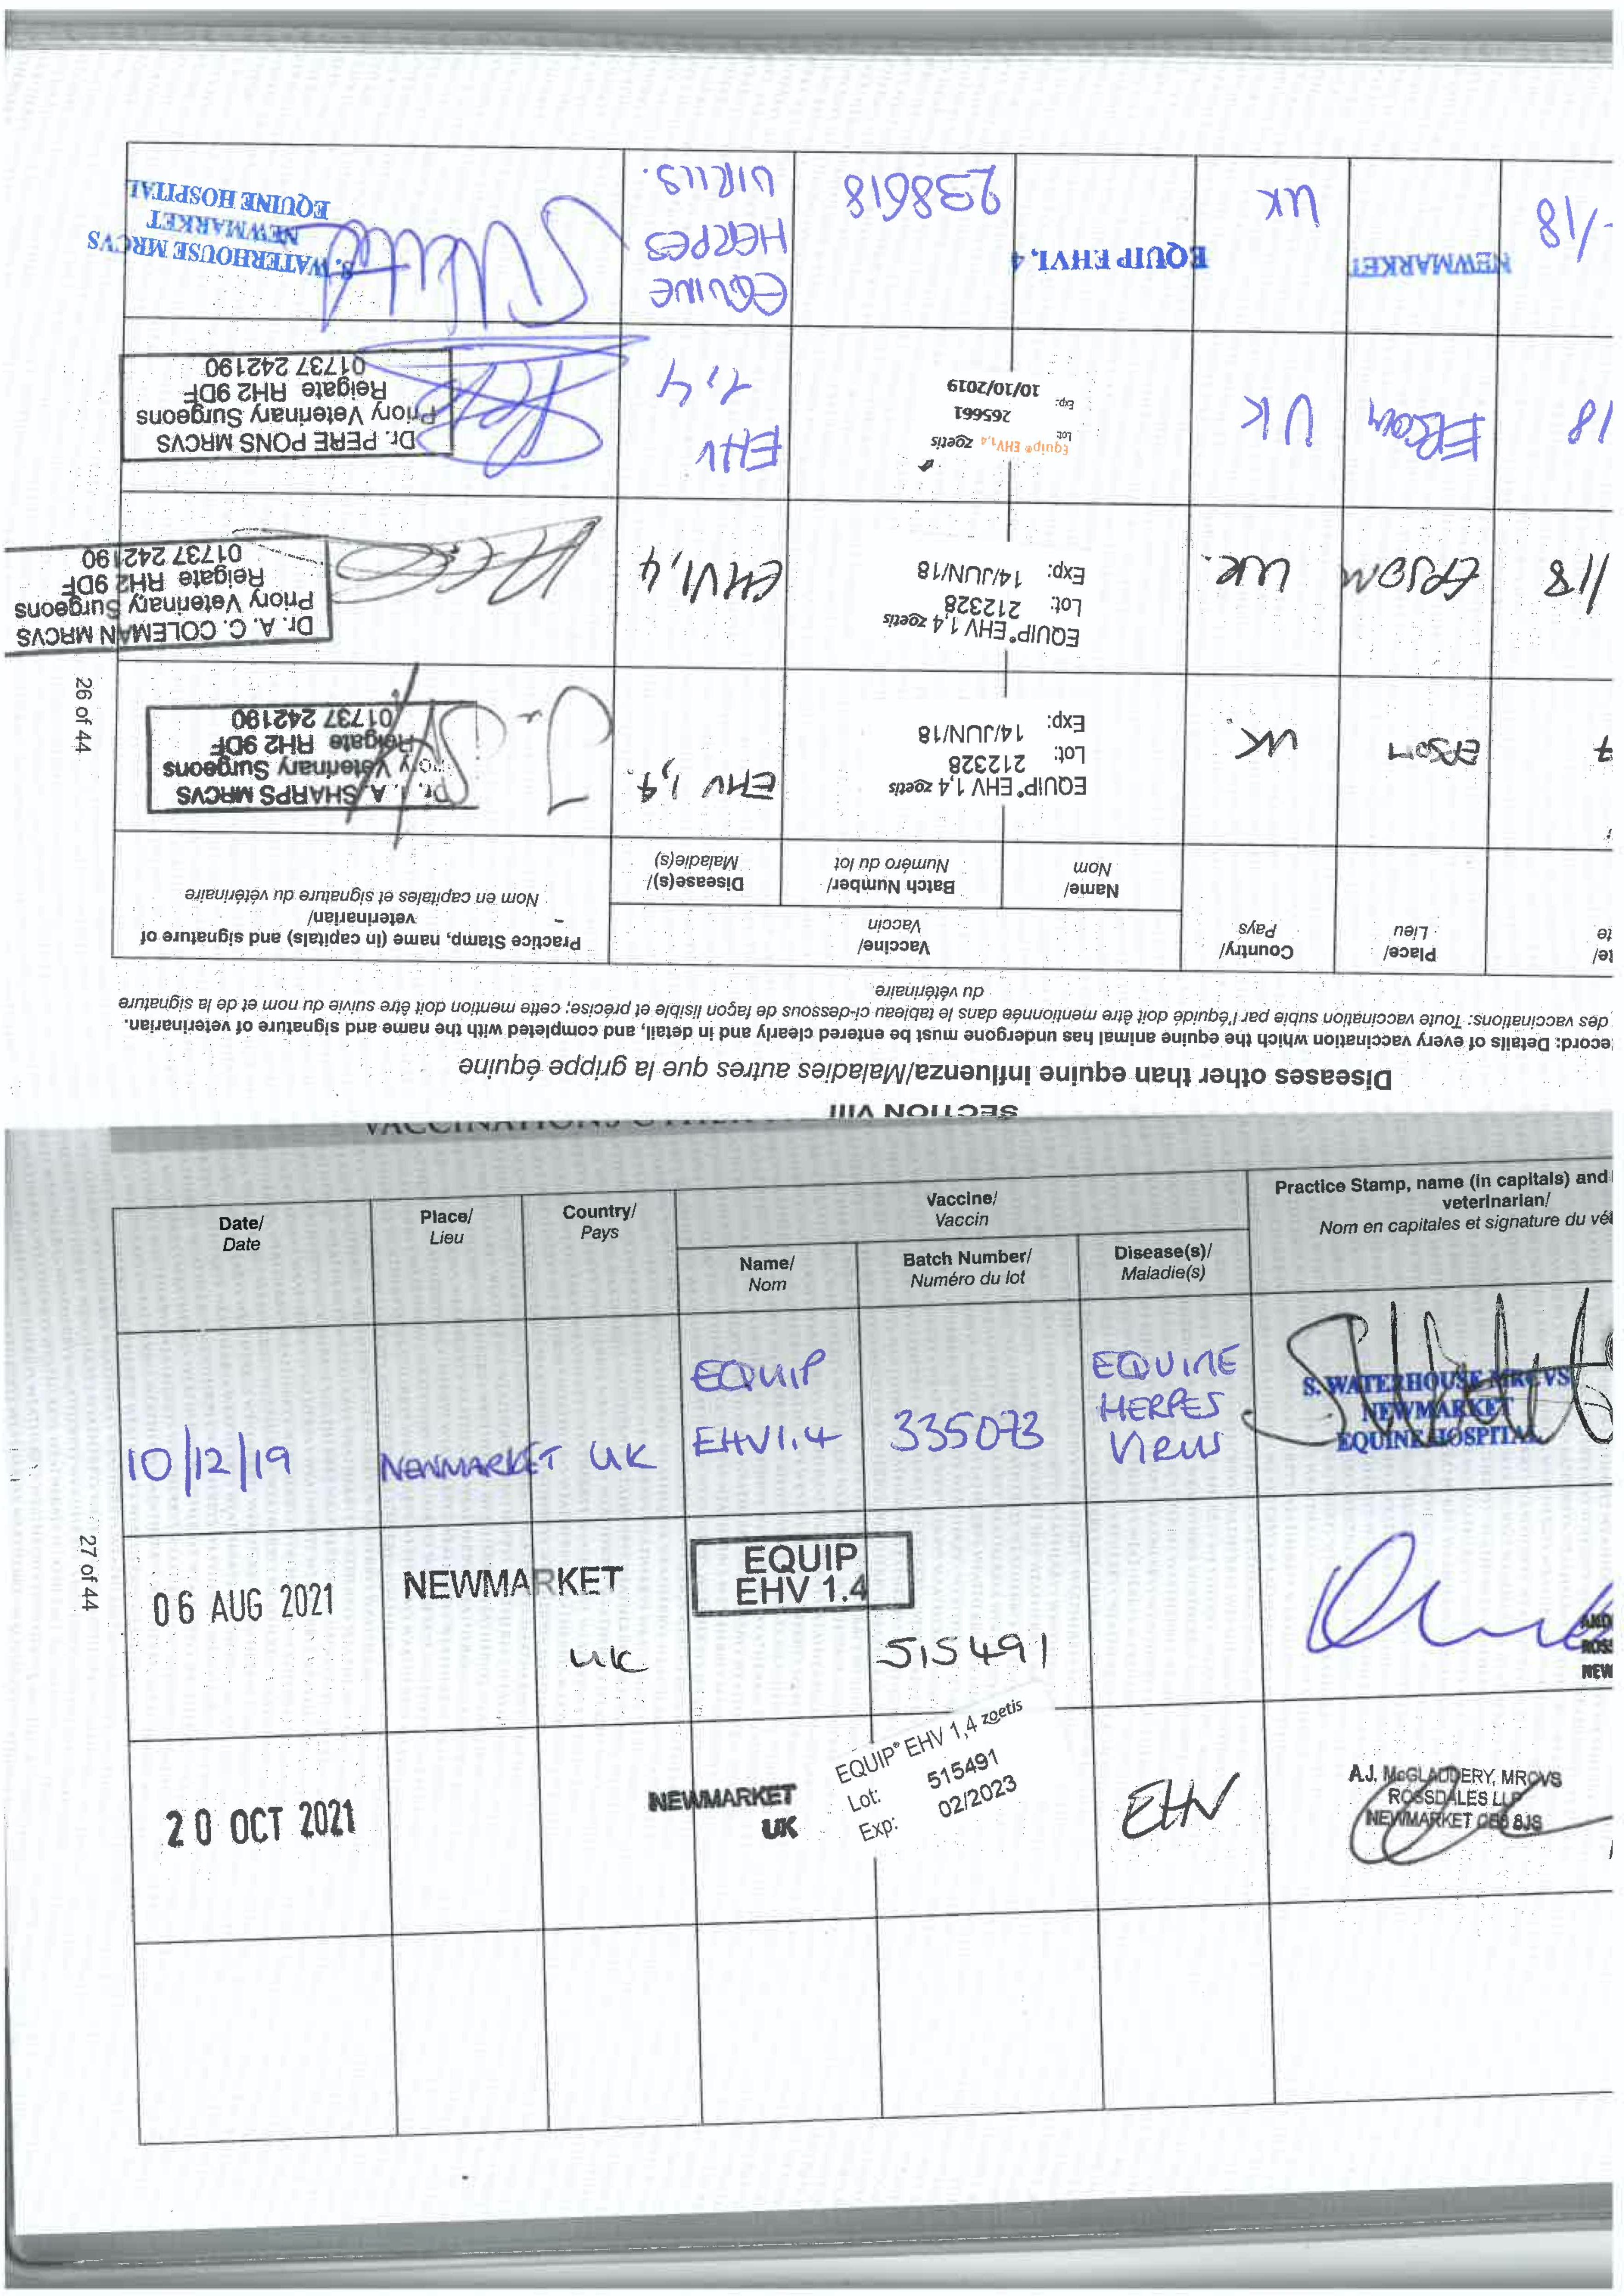 SECTION VIII
Diseases other than equine influenza/Maladies autres que la grippe équine
record: Details of every vaccination which the equine animal has undergone must be entered clearly and in detail, and completed with the name and signature of veterinarian.
des vaccinations: Toute vaccination subie par l'équidé doit être mentionnée dans le tableau ci-dessous de façon lisible et précise; cette mention doit être suivie du nom et de la signature
du vétérinaire
te/
te
Place/
Lieu
Country/
Pays
Vaccine/
Vaccin
Name/
Nom
Batch Number/
Numéro du lot
Disease(s)/
Maladie(s)
Practice Stamp, name (in capitals) and signature of
veterinarian/
Nom en capitales et signature du vétérinaire
7
EPSOM
UK.
EQUIP® EHV 1,4 zoetis
Lot: 212328
Exp: 14/JUN/18
EHV 1,4.
A. SHARPS MRCVS
Veterinary Surgeons
Reigate RH2 9DF
01737 242190
/18
EPSOM
UK.
EQUIP® EHV 1,4 zoetis
Lot: 212328
Exp: 14/JUN/18
EHV1,4
Dr. A. C. COLEMAN MRCVS
Priory Veterinary Surgeons
Reigate RH2 9DF
01737 242190
18
EPSOM
UK
Equip® EHV1,4 zoetis
Lot: 265661
Exp: 10/10/2019
EHV
1,4
Dr. PERE PONS MRCVS
Priory Veterinary Surgeons
Reigate RH2 9DF
01737 242190
/18
NEWMARKET
UK
EQUIP EHV1, 4
238618
EQUINE
HERPES
VIRUS.
S. WATERHOUSE MRCVS
NEWMARKET
EQUINE HOSPITAL
26 of 44
Date/
Date
Place/
Lieu
Country/
Pays
Vaccine/
Vaccin
Name/
Nom
Batch Number/
Numéro du lot
Disease(s)/
Maladie(s)
Practice Stamp, name (in capitals) and
veterinarian/
Nom en capitales et signature du vé
10/12/19
NEWMARKET UK
EQUIP
EHV1.4
335073
EQUINE
HERPES
VIRUS
S. WATERHOUSE MRCVS
NEWMARKET
EQUINE HOSPITAL
06 AUG 2021
NEWMARKET
UK
EQUIP
EHV 1.4
515491
AND
ROSS
NEW
20 OCT 2021
NEWMARKET
UK
EQUIP® EHV 1,4 zoetis
Lot: 515491
Exp: 02/2023
EHV
A.J. McGLADDERY, MRCVS
ROSSDALES LLP
NEWMARKET CB8 8JS
27 of 44